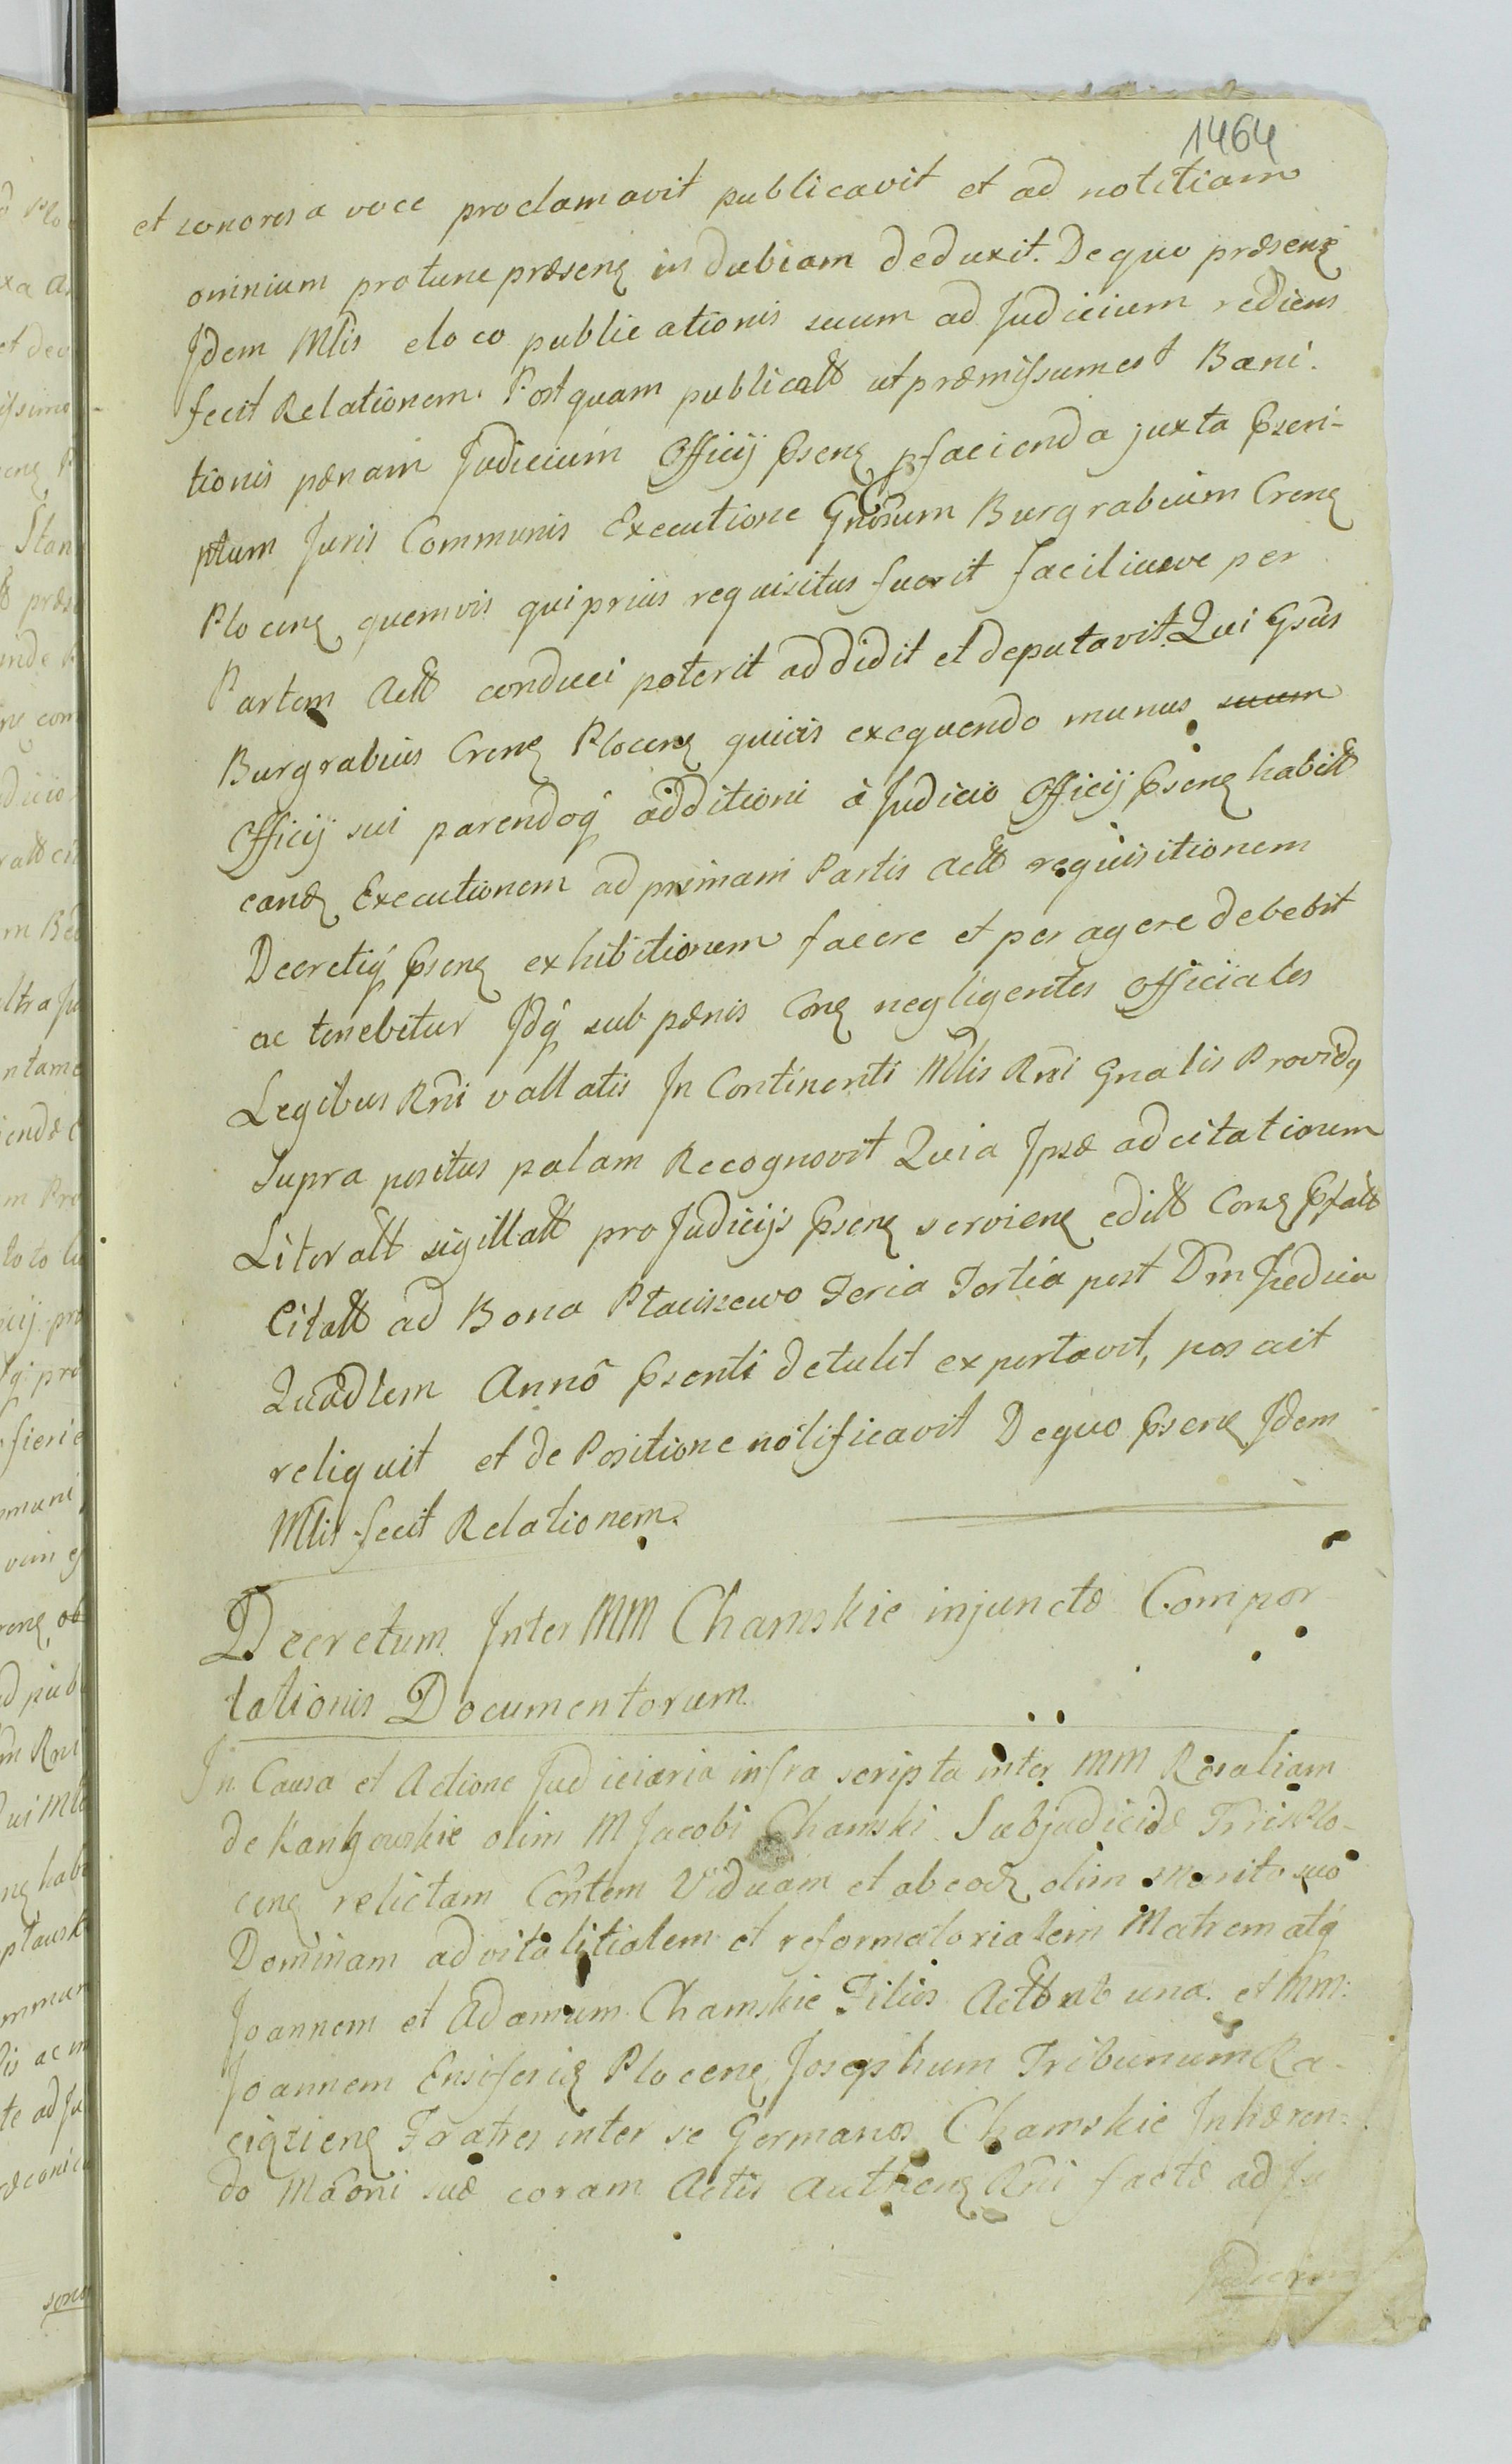 1464
et sonorosa voce proclamavit publicavit et ad notitiam
omnium protunc præsenę in dubiam deduxit. De quo præsenę
Idem Mlis e loco publicationis suum ad Judicium rediens
fecit Relationem. Postquam publicatt ut præmissum est Bani.
tionis pænam Judicium Officij Psenę pfacienda juxta Pscri-
ptum Juris Communis Executione Gnosum Burgrabium Crenę
Plocenę quemvis qui prius requisitus fuerit faciliusve per
Partem Actt conduci poterit addidit et deputavit. Qui Gsus
Burgrabius Crenę Plocenę quivis exequendo munus suum
Officij sui parendoq additioni à Judicio Officij Psenę habitt
eandę Executionem ad primam Partis Actt requisitionem
Decretiq Psenę exhibitionem facere et peragere debebit
ac tenebitur Idq sub pænis Conę negligentes Officiales
Legibus Rni vallatis In Continenti Mlis Rni Gnalis Providq
Supra positus palam Recognovit Quia Ipse ad citationem
Literatt sigillatt pro Judicijs Psenę servienę editt Conę Pfatt
Citatt ad Bona Ptaciszewo Feria Tertia post Dm
Quadlem Anno Psenti detulit exportavit, posuit
reliquit et de Positione notificavit De quo Psenę Idem
Mlis fecit Relationem.
Decretum Inter MM Chamskie injunctæ Compor
tationis Documentorum
In Causa et Actione Judiciaria infra scripta inter MM Rosaliam
de olim M Jacobi Chamski Subjudicidæ Tris Plo-
cenę relictam Contem Viduam et ab eodę olim Marito suo
Dominam advitalitialem et reformatorialem Matrem atq
Joannem et Adamum Chamskie Filios Actt ab una et MM:
Joannem Ensiferię Plocenę Josephum Tribunum Ra-
ciązienę Fratres inter se Germanos Chamskie Inhæren=
do Maoni suæ coram Actis Authenę Rni factæ ad Ju
Judicium